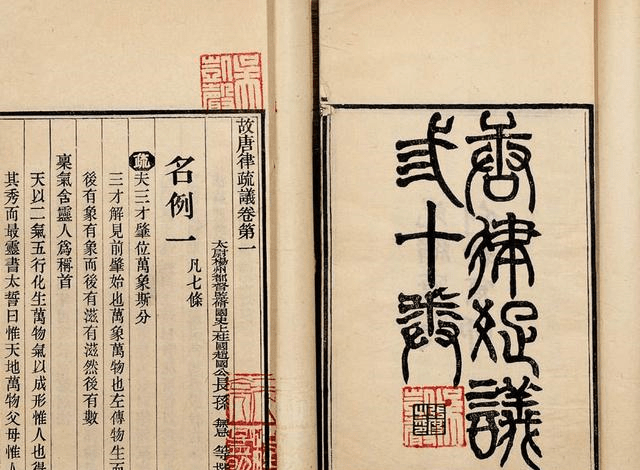 唐律疏議
弎十卷
故唐律疏議卷第一
太尉揚州都督監脩國史上柱國趙國公長孫無忌等
名例一 凡七條
疏夫三才肇位萬象斯分
三才解見前肇始也萬象萬物也左傳物生而
後有象有象而後有滋有滋然後有數
稟氣含靈人爲稱首
天以二氣五行化生萬物氣以成形惟人也得
其秀而最靈書太誓曰惟天地萬物父母惟人